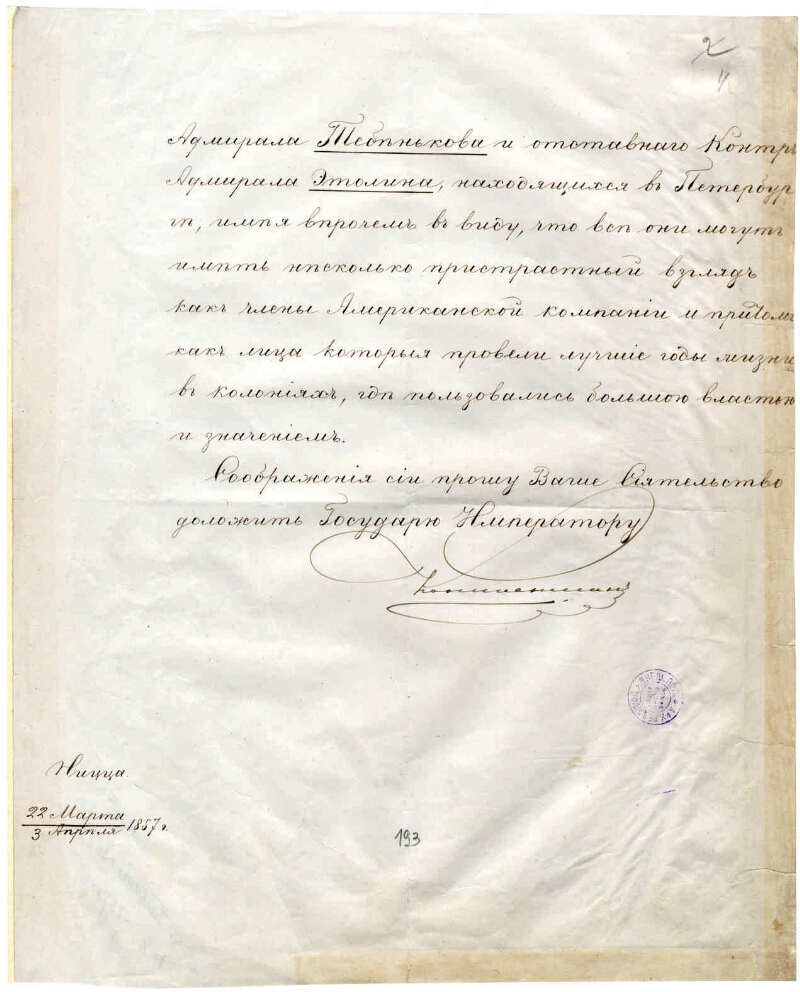 Адмирала Тебѣнькова и отставнаго Контръ
Адмирала Этолина, находящихся въ Петербур
гѣ, имѣя впрочемъ въ виду, что всѣ они могутъ
имѣть нѣсколько пристрастный взглядъ
какъ члены Американской компаніи и притомъ
какъ лица которыя провели лучшіе годы жизни
въ колоніяхъ, гдѣ пользовались большою властью
и значеніемъ.
Соображенія сіи прошу Ваше Сіятельство
доложить Государю Императору
Константинъ
Ницца.
22 Марта
3 Апрѣля 1857 г.
193